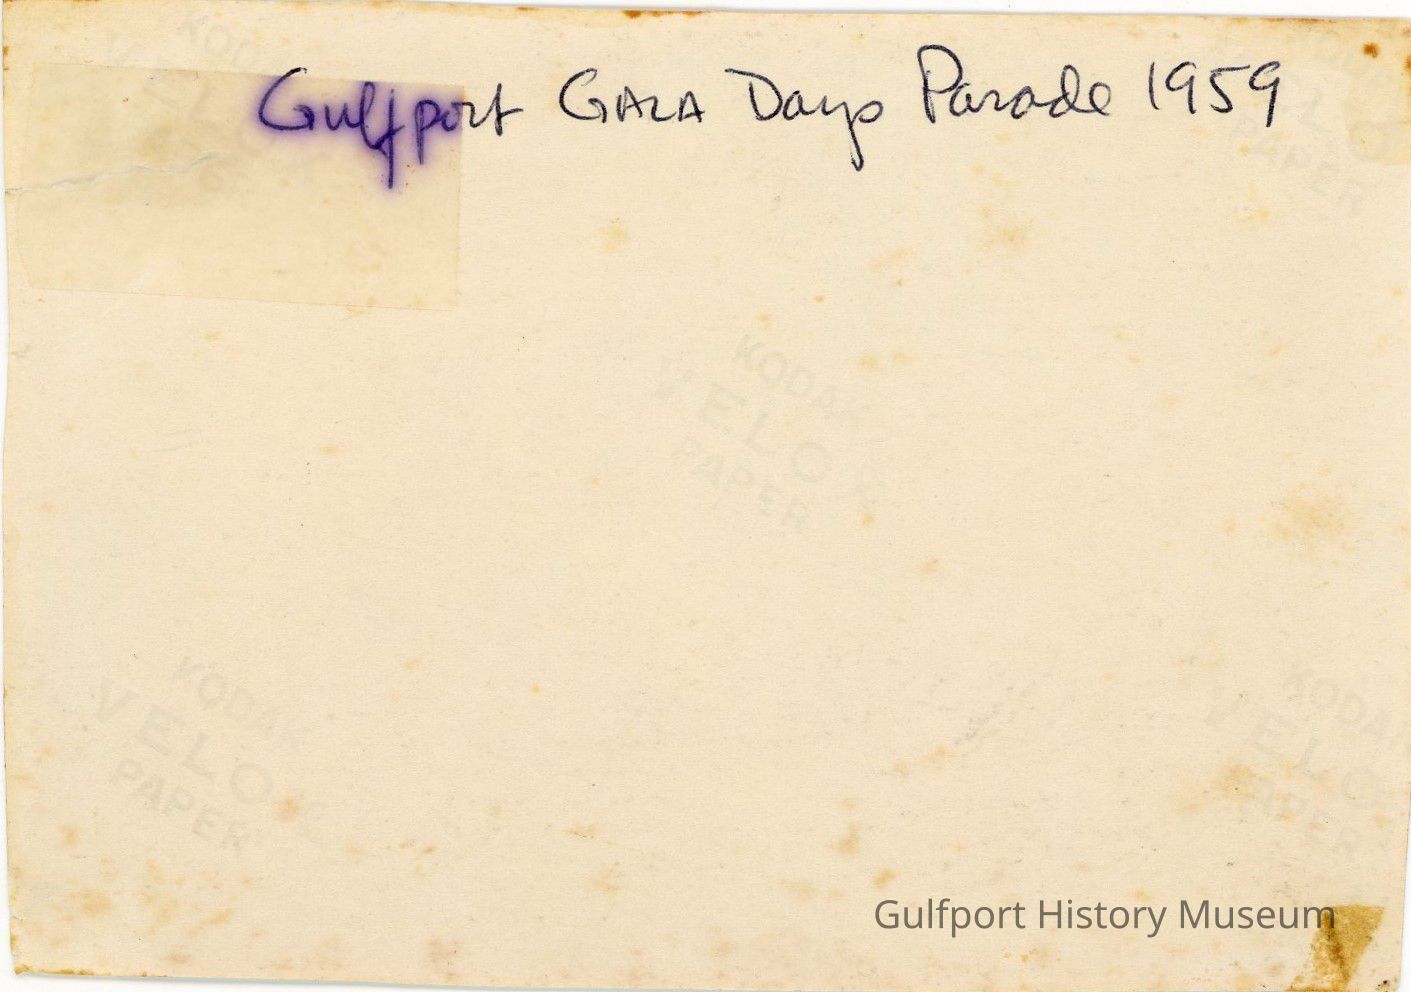 Gulfport GALA Days Parade 1959
KODAK
VELOX
PAPER
KODAK
VELOX
PAPER
KODAK
VELOX
PAPER
KODAK
VELOX
PAPER
Gulfport History Museum